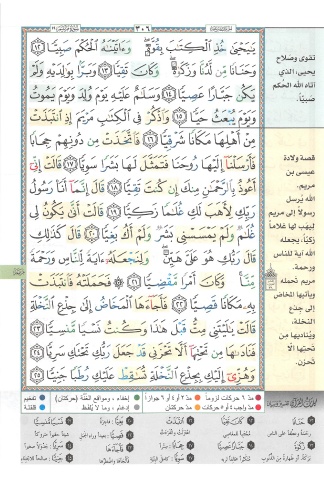 ٣٠٦
يَٰيَحْيَىٰ خُذِ ٱلْكِتَٰبَ بِقُوَّةٍ وَءَاتَيْنَٰهُ ٱلْحُكْمَ صَبِيًّا ١٢
وَحَنَانًا مِّن لَّدُنَّا وَزَكَوٰةً وَكَانَ تَقِيًّا ١٣ وَبَرًّۢا بِوَٰلِدَيْهِ وَلَمْ
يَكُن جَبَّارًا عَصِيًّا ١٤ وَسَلَٰمٌ عَلَيْهِ يَوْمَ وُلِدَ وَيَوْمَ يَمُوتُ
وَيَوْمَ يُبْعَثُ حَيًّا ١٥ وَٱذْكُرْ فِى ٱلْكِتَٰبِ مَرْيَمَ إِذِ ٱنتَبَذَتْ
مِنْ أَهْلِهَا مَكَانًا شَرْقِيًّا ١٦ فَٱتَّخَذَتْ مِن دُونِهِمْ حِجَابًا
فَأَرْسَلْنَآ إِلَيْهَا رُوحَنَا فَتَمَثَّلَ لَهَا بَشَرًا سَوِيًّا ١٧ قَالَتْ إِنِّىٓ
أَعُوذُ بِٱلرَّحْمَٰنِ مِنكَ إِن كُنتَ تَقِيًّا ١٨ قَالَ إِنَّمَآ أَنَا۠ رَسُولُ
رَبِّكِ لِأَهَبَ لَكِ غُلَٰمًا زَكِيًّا ١٩ قَالَتْ أَنَّىٰ يَكُونُ لِى
غُلَٰمٌ وَلَمْ يَمْسَسْنِى بَشَرٌ وَلَمْ أَكُ بَغِيًّا ٢٠ قَالَ كَذَٰلِكِ
قَالَ رَبُّكِ هُوَ عَلَىَّ هَيِّنٌ وَلِنَجْعَلَهُۥٓ ءَايَةً لِّلنَّاسِ وَرَحْمَةً
مِّنَّا وَكَانَ أَمْرًا مَّقْضِيًّا ٢١ فَحَمَلَتْهُ فَٱنتَبَذَتْ
بِهِۦ مَكَانًا قَصِيًّا ٢٢ فَأَجَآءَهَا ٱلْمَخَاضُ إِلَىٰ جِذْعِ ٱلنَّخْلَةِ
قَالَتْ يَٰلَيْتَنِى مِتُّ قَبْلَ هَٰذَا وَكُنتُ نَسْيًا مَّنسِيًّا ٢٣
فَنَادَىٰهَا مِن تَحْتِهَآ أَلَّا تَحْزَنِى قَدْ جَعَلَ رَبُّكِ تَحْتَكِ سَرِيًّا ٢٤
وَهُزِّىٓ إِلَيْكِ بِجِذْعِ ٱلنَّخْلَةِ تُسَٰقِطْ عَلَيْكِ رُطَبًا جَنِيًّا ٢٥
تقوى وصلاح
يحيى، الذي
آتاه الله الحكم
صبيّاً.
قصة ولادة
عيسى بن
مريم.
الله يُرسل
رسولاً إلى مريم
ليهب لها غلاماً
زكيّاً، يجعله
الله آية للناس
ورحمة.
مريم تحمله
ويأتيها المخاض
إلى جذع
النخلة،
ويُناديها من
تحتها ألّا
تحزن.